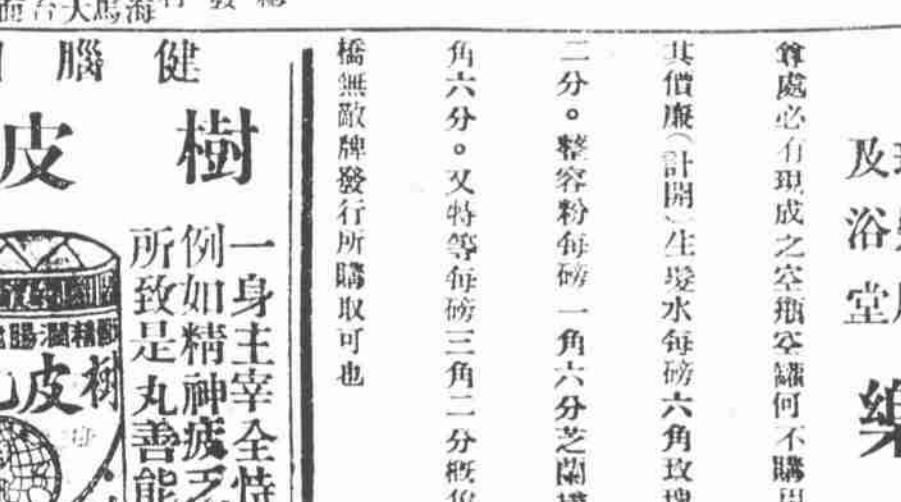 及
浴
堂
尊處必有現成之空瓶空罐何不購
其價廉（計開）生髮水每磅六角玫瑰
二分。整容粉每磅一角六分芝蘭
角六分。又特等每磅三角二分概
橋無敵牌發行所購取可也
健腦
樹皮
一身主宰全恃
例如精神疲乏
所致是丸善能
樹皮丸